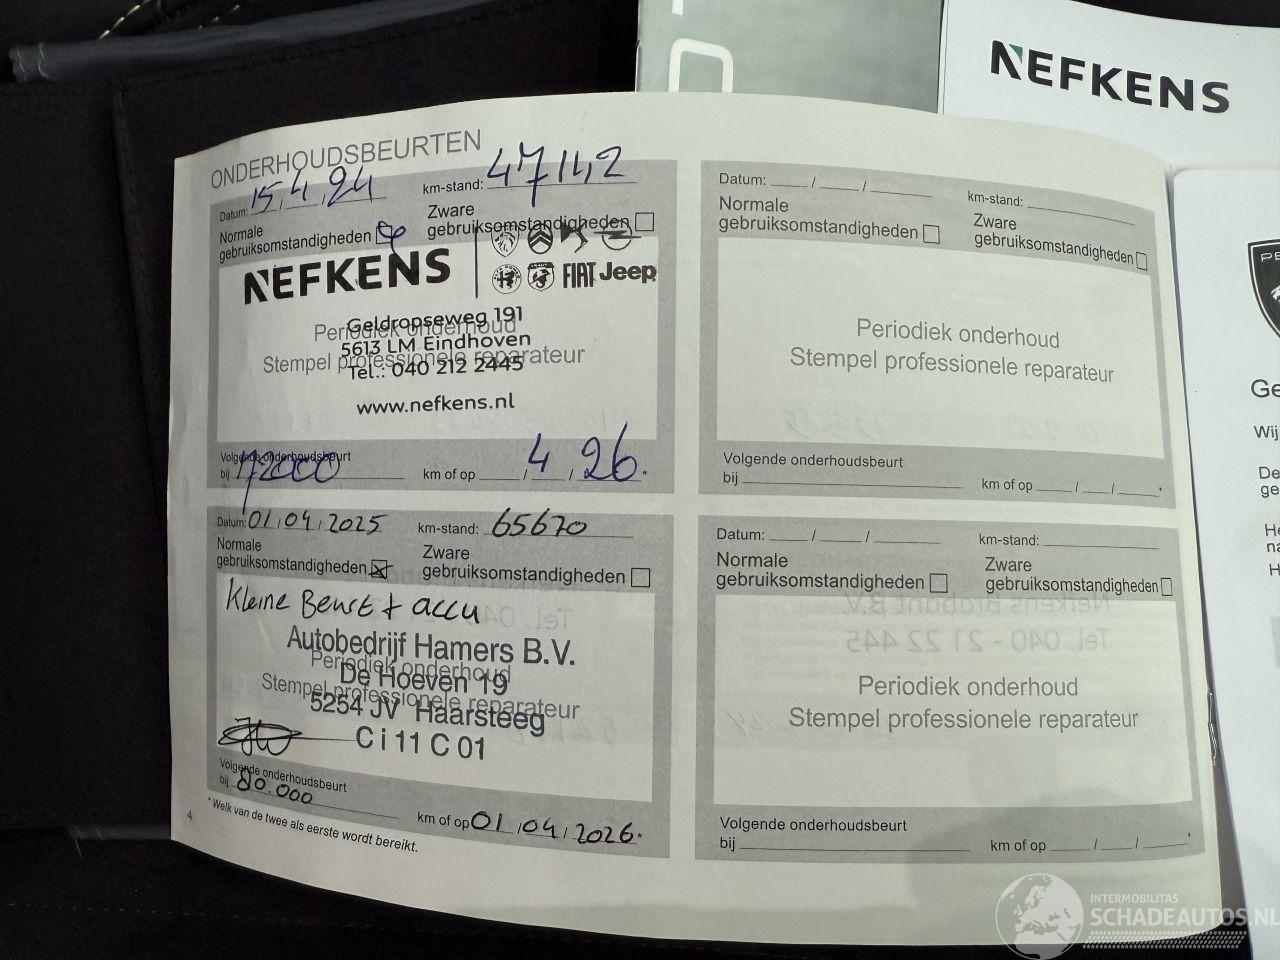 NEFKENS
ONDERHOUDSBEURTEN
Datum: 15, 4, 24 km-stand: 47142
Normale gebruiksomstandigheden
Zware gebruiksomstandigheden
NEFKENS
FIAT Jeep
Periodiek onderhoud
Stempel professionele reparateur
Geldropseweg 191
5613 LM Eindhoven
Tel.: 040 212 2445
www.nefkens.nl
Volgende onderhoudsbeurt
bij 72000 km of op / 4 / 26.*
Datum: 01, 04, 2025 km-stand: 65670
Normale gebruiksomstandigheden
Zware gebruiksomstandigheden
Kleine Beurt + accu
Periodiek onderhoud
Stempel professionele reparateur
Autobedrijf Hamers B.V.
De Hoeven 19
5254 JV Haarsteeg
Ci 11 C 01
Volgende onderhoudsbeurt
bij 80.000 km of op 01, 04, 2026.
* Welk van de twee als eerste wordt bereikt.
4
Datum: / / km-stand:
Normale gebruiksomstandigheden
Zware gebruiksomstandigheden
Periodiek onderhoud
Stempel professionele reparateur
Volgende onderhoudsbeurt
bij km of op / / *
Datum: / / km-stand:
Normale gebruiksomstandigheden
Zware gebruiksomstandigheden
Periodiek onderhoud
Stempel professionele reparateur
Volgende onderhoudsbeurt
bij km of op / / *
Wij
De
INTERMOBILITAS
SCHADEAUTOS.NL